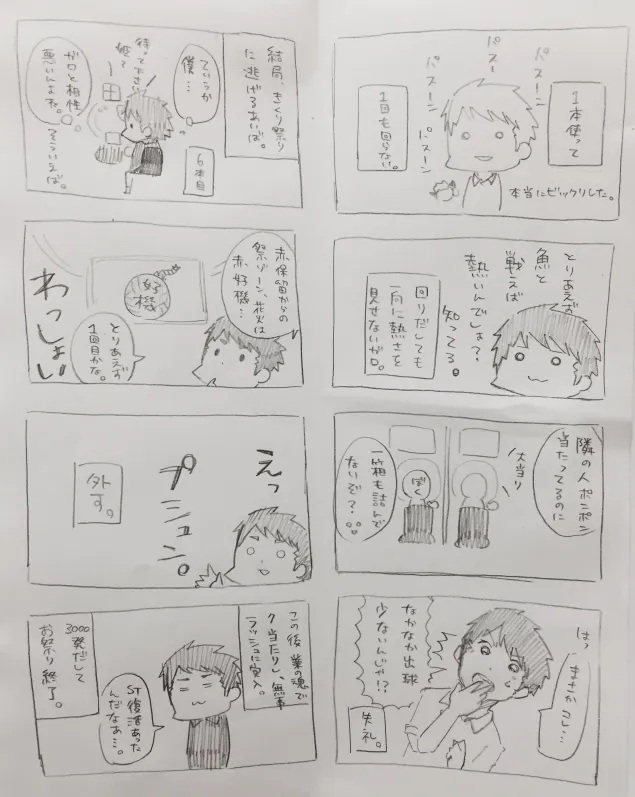 1本使って
1回も回らない。
パスーン
パスー
パスーン
パスーン
パスーン
本当にビックリした。
とりあえず
魚と
戦えば
熱いんでしょ?
知ってる。
回りだしても
一向に熱さを
見せないガロ。
隣の人ポンポン
当たってるのに
大当り
ぼく
一箱も詰んで
ないぞ?
はっ
まさかコレ…
なかなか出球
少ないんじゃ!?
失礼。
結局、きくり祭り
に逃げるあいば。
ていうか
僕…
待って下さい
姫?
6本目
ガロと相性
悪いんよね。
そういえば。
赤保留からの
祭ゾーン、花火は
赤好機…
好機
とりあえず
1回目かな。
わっしょい
えっ
プシュン。
外す。
この後、業の魂で
7当たりし、無事
ラッシュに突入。
ST復活あった
んだなぁ…。
3000発だして
お祭り終了。